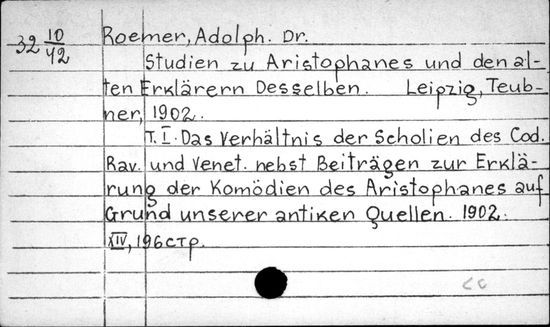 32 10/42
Roemer, Adolph. Dr.
Studien zu Aristophanes und den al-
ten Erklärern Desselben. Leipzig, Teub-
ner, 1902.
T. I. Das Verhältnis der Scholien des Cod.
Rav. und Venet. nebst Beiträgen zur Erklä-
rung der Komödien des Aristophanes auf
Grund unserer antiken Quellen. 1902.
XIV, 196 стр.
cc